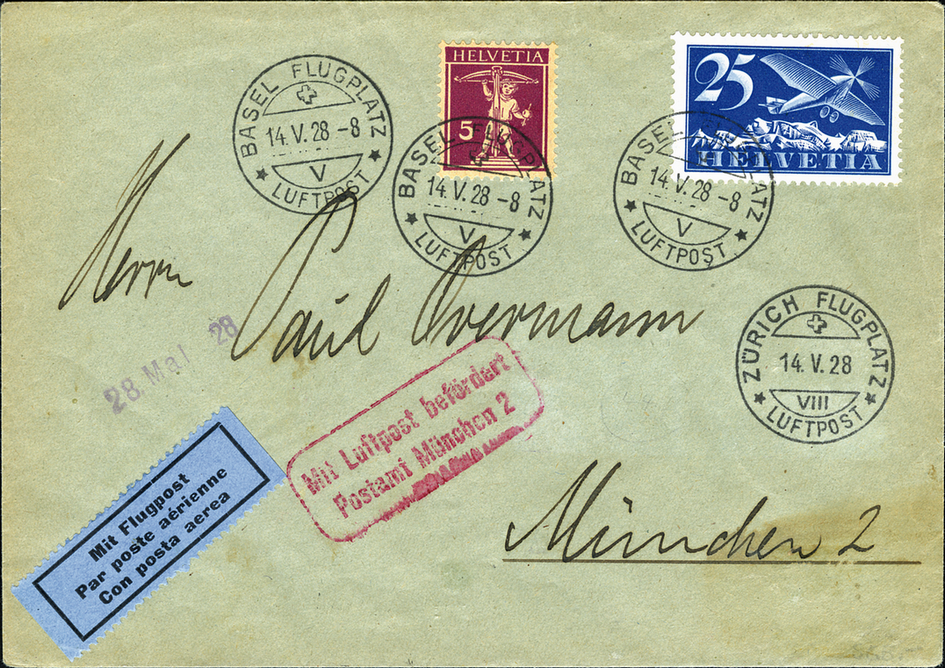 BASEL FLUGPLATZ
14.V.28-8
V
LUFTPOST
HELVETIA
5
BASEL FLUGPLATZ
14.V.28-8
V
LUFTPOST
25
HELVETIA
BASEL FLUGPLATZ
14.V.28-8
V
LUFTPOST
Herrn
Paul Overmann
28. Mai 28
ZÜRICH FLUGPLATZ
14.V.28
VIII
LUFTPOST
Mit Luftpost befördert
Postamt München 2
Mit Flugpost
Par poste aérienne
Con posta aerea
München 2